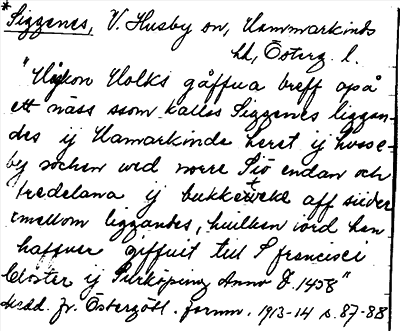 * Siggenes, V. Husby sn, Hammarkinds
hd, Österg. l.
"Håkon Holks gåffua breff opå
ett näss ssom kalles Siggenes liggan-
des ij Hamarkinda heret ij hwsse-
by sochen wed norre Siö endan och
tredelana ij bukkeweke aff sijder
emellom liggandes, huilken iord han
haffuer giffuit till S francisci
Closter ij Surköping Anno D. 1458"
Medd. fr. Östergötl. fornm. 1913-14 s. 87-88